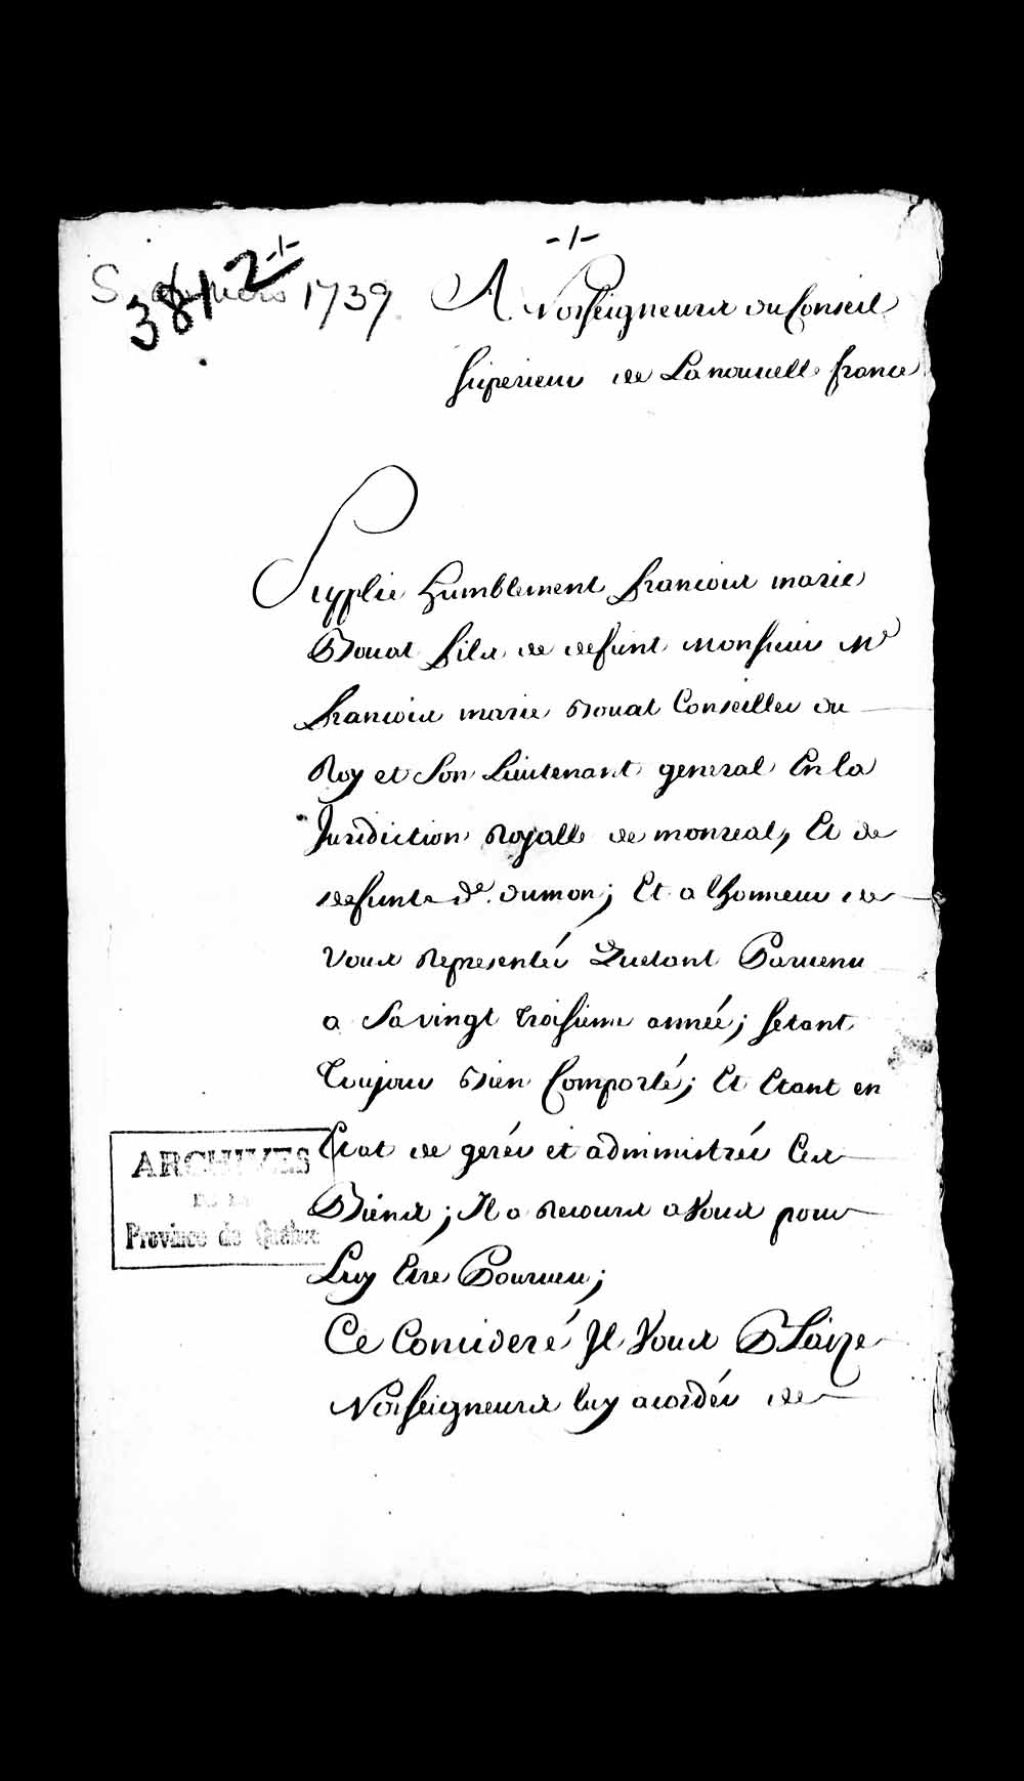 -1-
3812 -1-
1739
A Nosseigneurs du Conseil
superieur de La nouvelle france
Supplie humblement francois marie
Bouat fils de defunt Monsieur Me
francois marie Bouat Conseiller du
Roy et Son Lieutenant general En la
Juridiction Royalle de monreal, Et de
defunte de. dumon; Et a lhonneur de
Vous Representér Quetant Parvenu
a Sa vingt troisieme année; setant
Toujour Bien Comporté; Et Etant en
Etat de gerér et administrér Ces
Biens; Il a Recours a Vous pour
Luy Etre Pourveu;
Ce Consideré Il Vous Plaize
Nosseigneurs luy acordér de
ARCHIVES
DE LA
Province de Québec